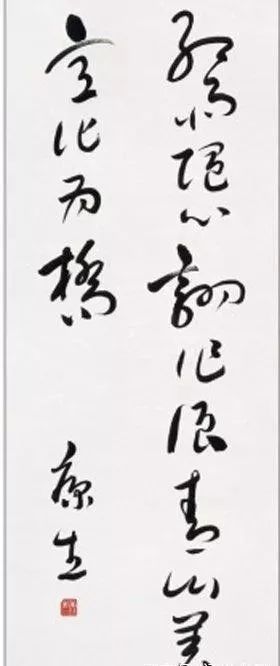 紅雨随心翻作浪青山着
意化为橋
康生